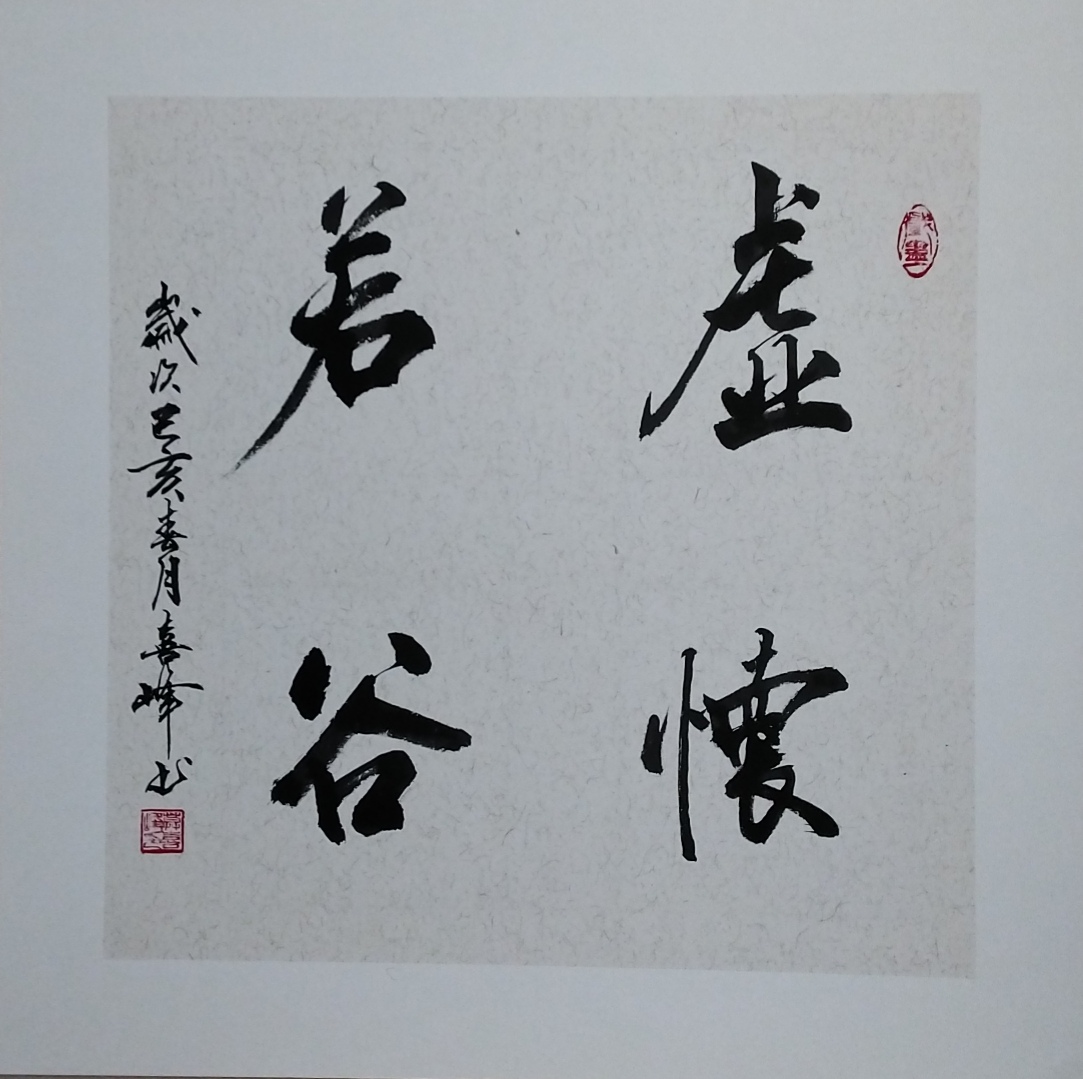 虚懷
若谷
歲次己亥春月喜峰书